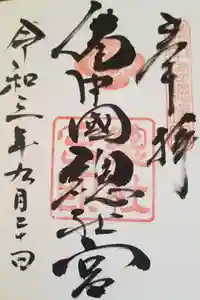 奉拝
備中國總社宮
令和三年九月二十日